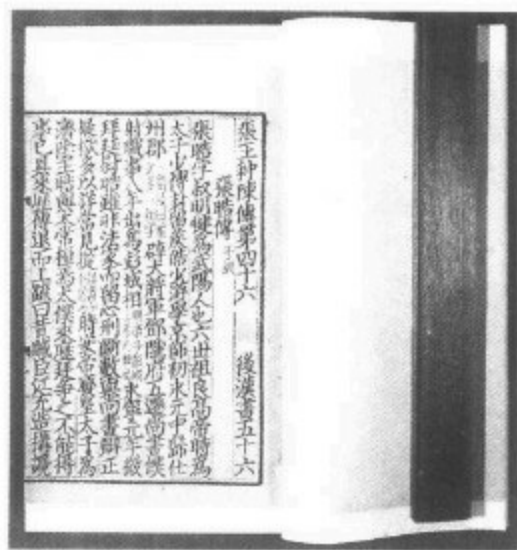 張王种陳傳第四十六 後漢書五十六
張晧傳 子綱
張晧字叔明犍為武陽人也六世祖良高帝時為
太子少傅封留侯晧少游學京師初永元中歸仕
州郡 辟大將軍鄧騭府五遷尚書僕
射職事八年出為彭城相 永寧元年徵
拜廷尉晧雖非法家而留心刑斷數與尚書辯正
疑獄多以詳當見從 時安帝廢皇太子為
濟陰王晧與太常桓焉太僕來歷廷爭之不能得
事已具來歷傳退而上疏曰昔賊臣江充造構讒